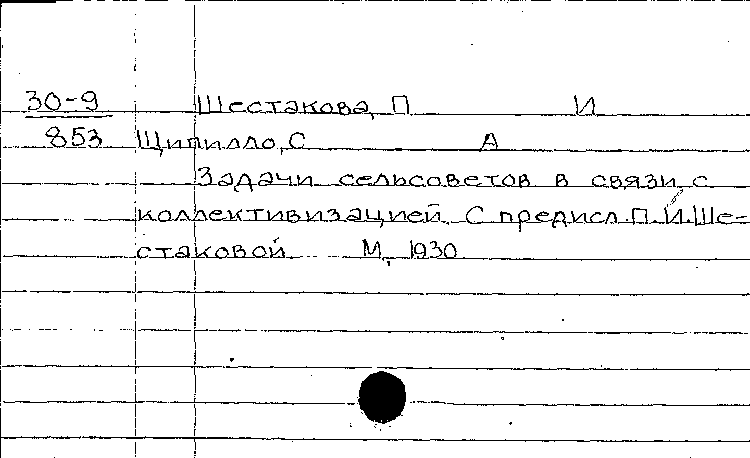 30-9 Шестакова, П И
853 Щипилло, С А
Задачи сельсоветов в связи с
коллективизацией. С предисл. П.И. Ше-
стаковой. М., 1930